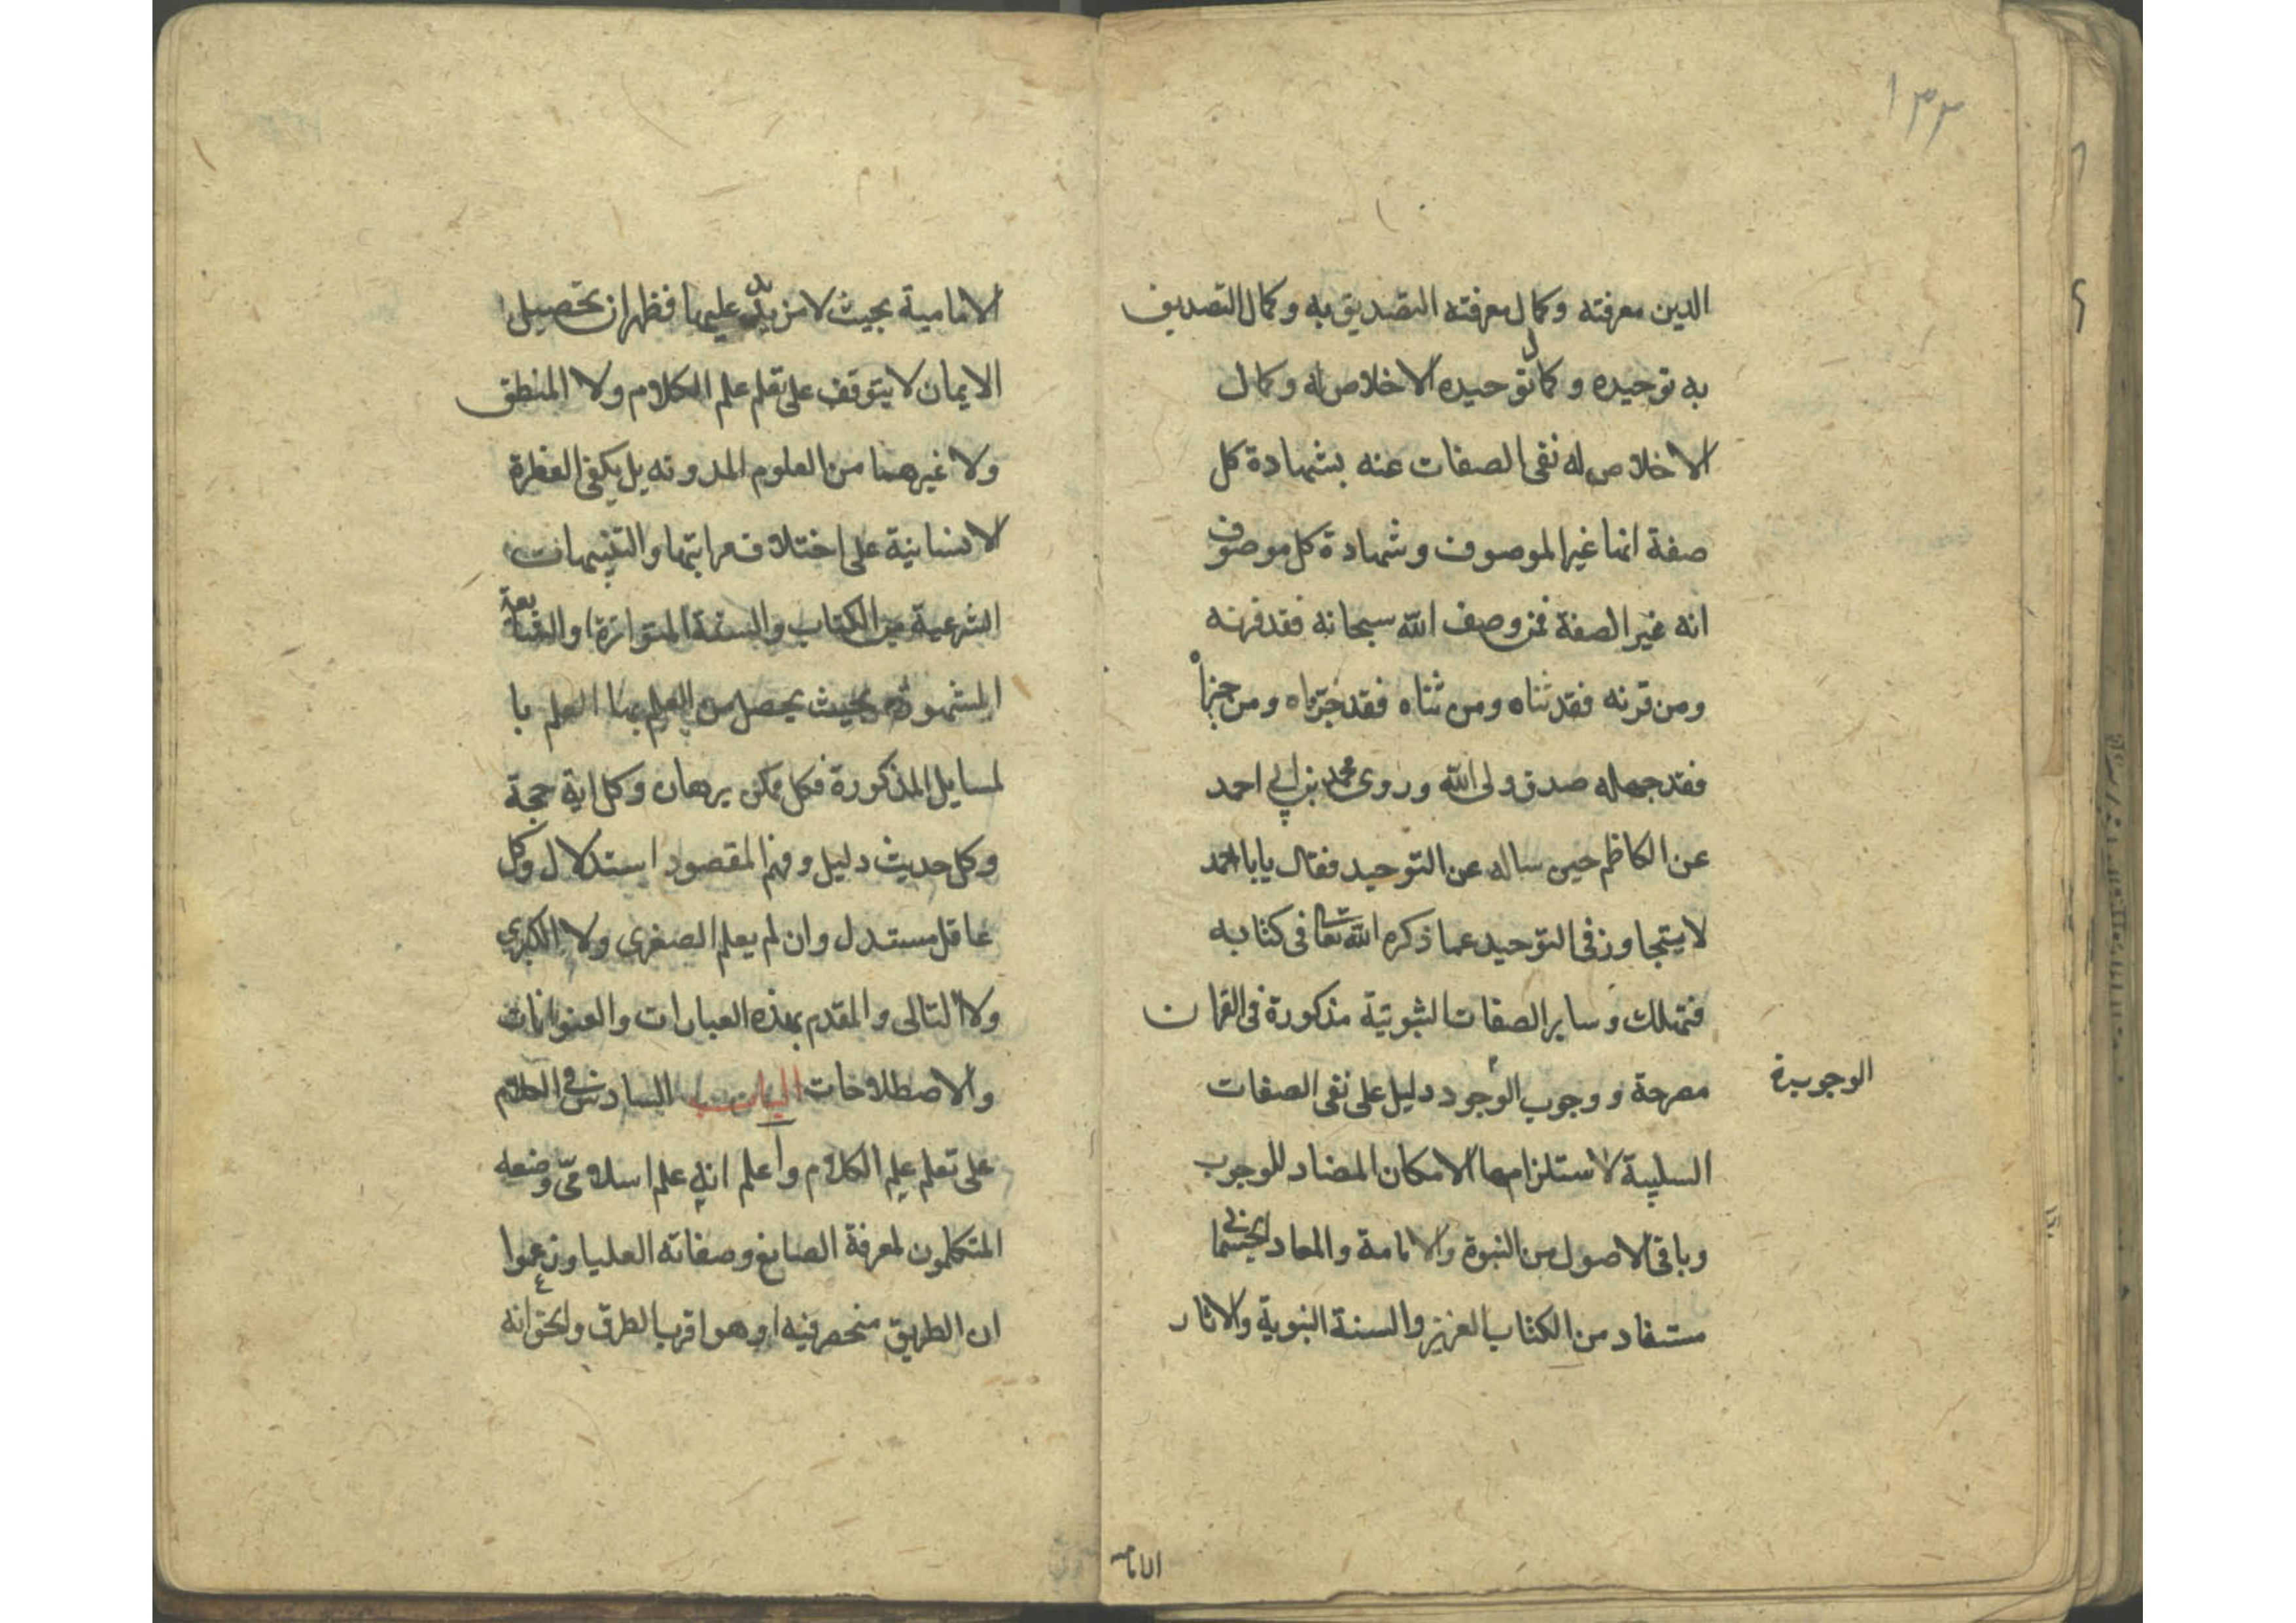 ١٣٣
الدين معرفته وكمال معرفته التصديق به وكمال التصديق
به توحيده وكمال توحيده الاخلاص له وكمال
الاخلاص له نفى الصفات عنه بشهادة كل
صفة انها غير الموصوف وشهادة كل موصوف
انه غير الصفة فمن وصف الله سبحانه فقد قرنه
ومن قرنه فقد ثناه ومن ثناه فقد جزاه ومن جزاه
فقد جهله صدق ولى الله وروى محمد بن ابى احمد
عن الكاظم حين ساله عن التوحيد فقال يابا احمد
لا يتجاوز فى التوحيد عما ذكره الله تعالى فى كتابه
فتهلك وساير الصفات الثبوتية مذكورة فى القران
مصرحة ووجوب الوجود دليل على نفى الصفات
الوجوبيدة
السلبية لاستلزامها الامكان المضاد للوجوب
وباقى الاصول من النبوة والامامة والمعاد الجسمانى
مستفاد من الكتاب العزيز والسنة النبوية والاثار
الاما
الامامية بحيث لا مزيد عليها فظهر ان تحصيل
الايمان لا يتوقف على تعلم علم الكلام ولا المنطق
ولا غيرهما من العلوم المدونه بل يكفى الفطرة
الانسانية على اختلاف مراتبها والتنبيهات
الشرعية من الكتاب والسنة المتواترة والشايعة
المشهورة بحيث يحصل من العلم بها العلم با
لمسايل المذكورة فكل ممكن برهان وكل اية حجة
وكل حديث دليل وفهم المقصود استدلال وكل
عاقل مستدل وان لم يعلم الصغرى ولا الكبرى
ولا التالى والمقدم بهذه العبارات والعنوانات
والاصطلاحات الباب السادس فى الكلام
على تعلم علم الكلام واعلم انه علم اسلامى وضعه
المتكلمون لمعرفة الصانع وصفاته العليا وزعموا
ان الطريق منحصر فيه او هو اقرب الطرق والحق انه